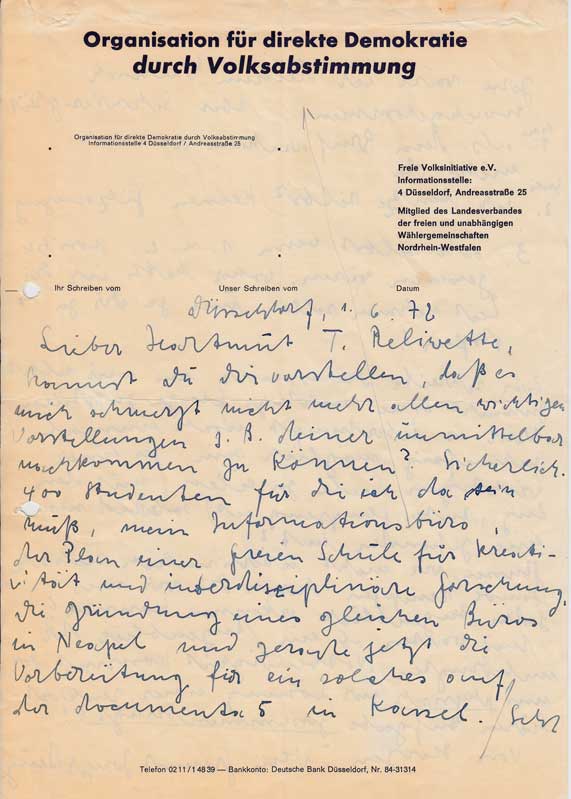 Organisation für direkte Demokratie
durch Volksabstimmung
Organisation für direkte Demokratie durch Volksabstimmung
Informationsstelle 4 Düsseldorf / Andreasstraße 25
Freie Volksinitiative e.V.
Informationsstelle:
4 Düsseldorf, Andreasstraße 25
Mitglied des Landesverbandes
der freien und unabhängigen
Wählergemeinschaften
Nordrhein-Westfalen
Ihr Schreiben vom Unser Schreiben vom Datum
Düsseldorf, 1. 6. 72
Lieber Hartmut T. Reliwette,
kannst Du dir vorstellen, daß es
mich schmerzt nicht mehr allen wichtigen
Vorstellungen z. B. deiner unmittelbar
nachkommen zu können? Sicherlich.
400 Studenten für die ich da sein
muß, mein Informationsbüro,
der Plan einer freien Schule für Kreati-
vität und interdisziplinäre Forschung,
die Gründung eines gleichen Büros
in Neapel und gerade jetzt die
Vorbereitung für ein solches auf
der documenta 5 in Kassel. / Seht
Telefon 02 11 / 1 48 39 — Bankkonto: Deutsche Bank Düsseldorf, Nr. 84-31314